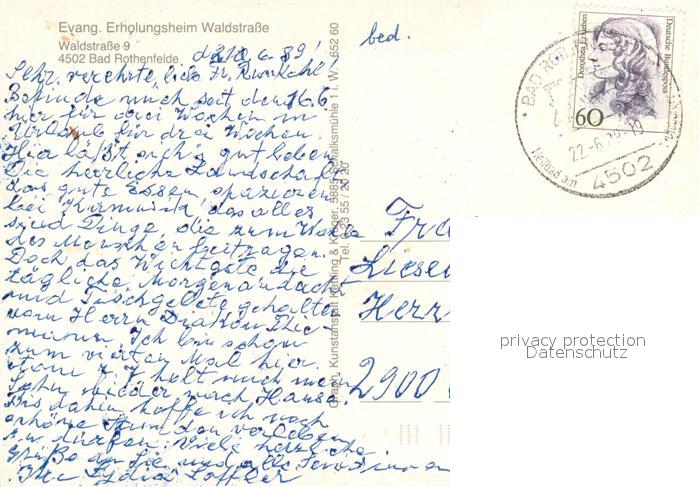 Evang. Erholungsheim Waldstraße
Waldstraße 9
4502 Bad Rothenfelde
d. 21. 6. 89!
bed.
Sehr verehrte, liebe Fr.
Befinde mich seit dem 16.6
hier für drei Wochen in
Urlaub für drei Wochen.
Hier läßt sich's gut leben.
Die herrliche Landschaft
das gute Essen, spazieren
bei Kurmusik, das alles
sind Dinge, die zum Wohle
des Menschen beitragen.
Doch das Wichtigste die
tägliche Morgenandacht
und Tischgebete gehalten
vom Herrn Diakon
Ich bin schon
zum vierten Mal hier.
holt mich mein
Sohn wieder nach Hause.
Bis dahin hoffe ich noch
schöne Stunden verleben
zu dürfen. Viele herzliche
Grüße an Sie und alle
Ihre Lydia Löffler
Graph. Kunstanstalt Kehling & Krüger, 5885 Schalksmühle 1 i. W. 652 60
Tel. 0 23 55 / 20 20
Fra
Liese
Herr
2900
Dorothea Erxleben
Deutsche Bundespost
60
BAD ROTHE
22.-6.89.-19
Heilbad am
4502
privacy protection
Datenschutz